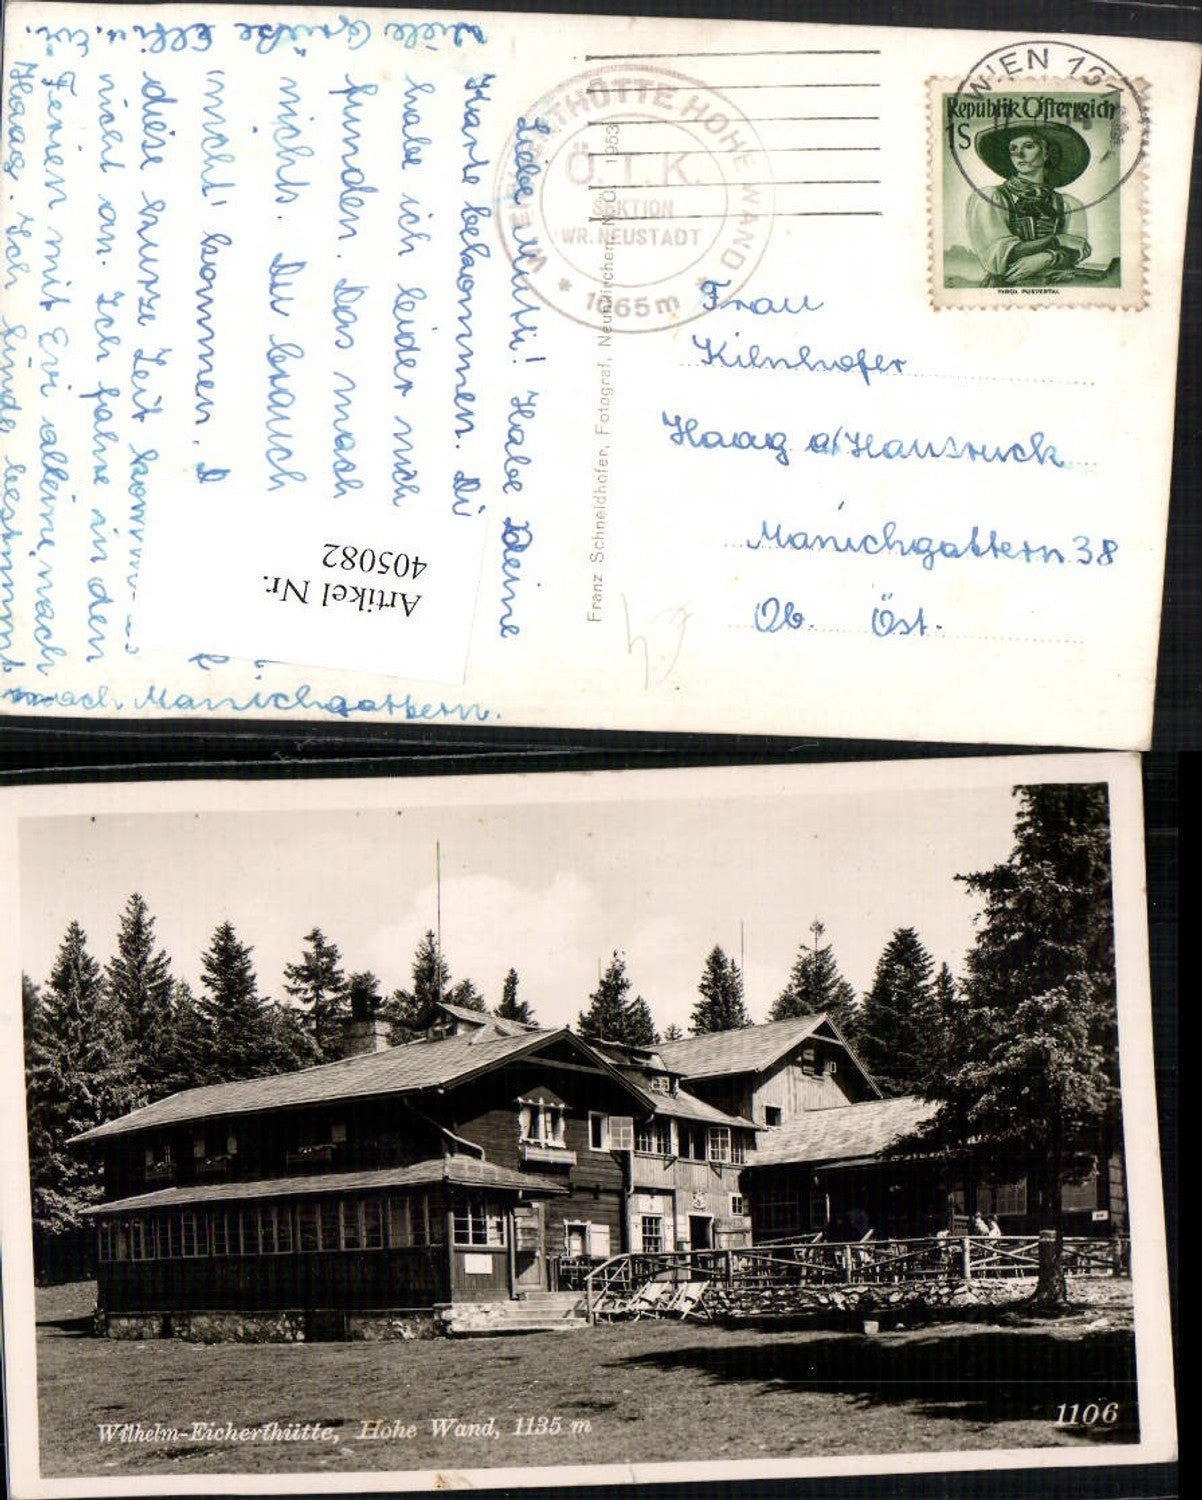 Liebe Mutti! Habe Deine
Karte bekommen. Du
habe ich leider nich
funden. Das mach
nichts. Du brauch
nicht kommen.
diese kurze Zeit
nicht an. Ich fahre in den
Ferien mit Evi alleine, nach
Haag. Ich finde bestimmt
nach Manichgattern.
Viele Grüße Elli u. Evi.
Artikel Nr.
405082
Ö. T. K.
SEKTION
WR. NEUSTADT
HÜTTE HOHE WAND
* 1065 m *
Franz Schneidhofer, Fotograf, Neunkirchen, N.Ö. 1953
WIEN 101
Republik Österreich
1S
TYROL PUSTERTAL
Frau
Kilnhofer
Haag a/Hausruck
Manichgattern 38
Ob. Öst.
Wilhelm-Eicherthütte, Hohe Wand, 1135 m
1106